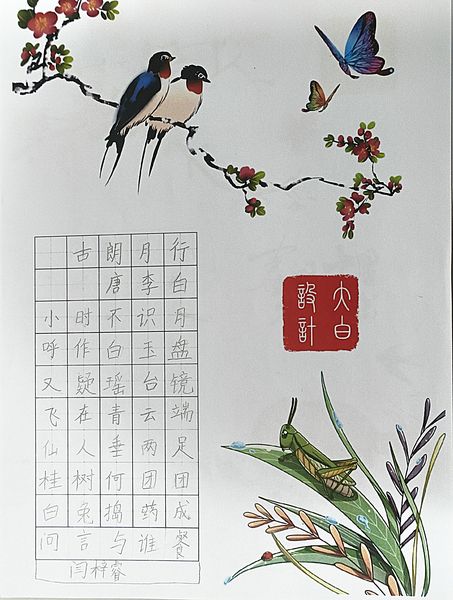 古朗月行
唐李白
小时不识月
呼作白玉盘
又疑瑶台镜
飞在青云端
仙人垂两足
桂树何团团
白兔捣药成
问言与谁餐
闫梓睿
大白
設計